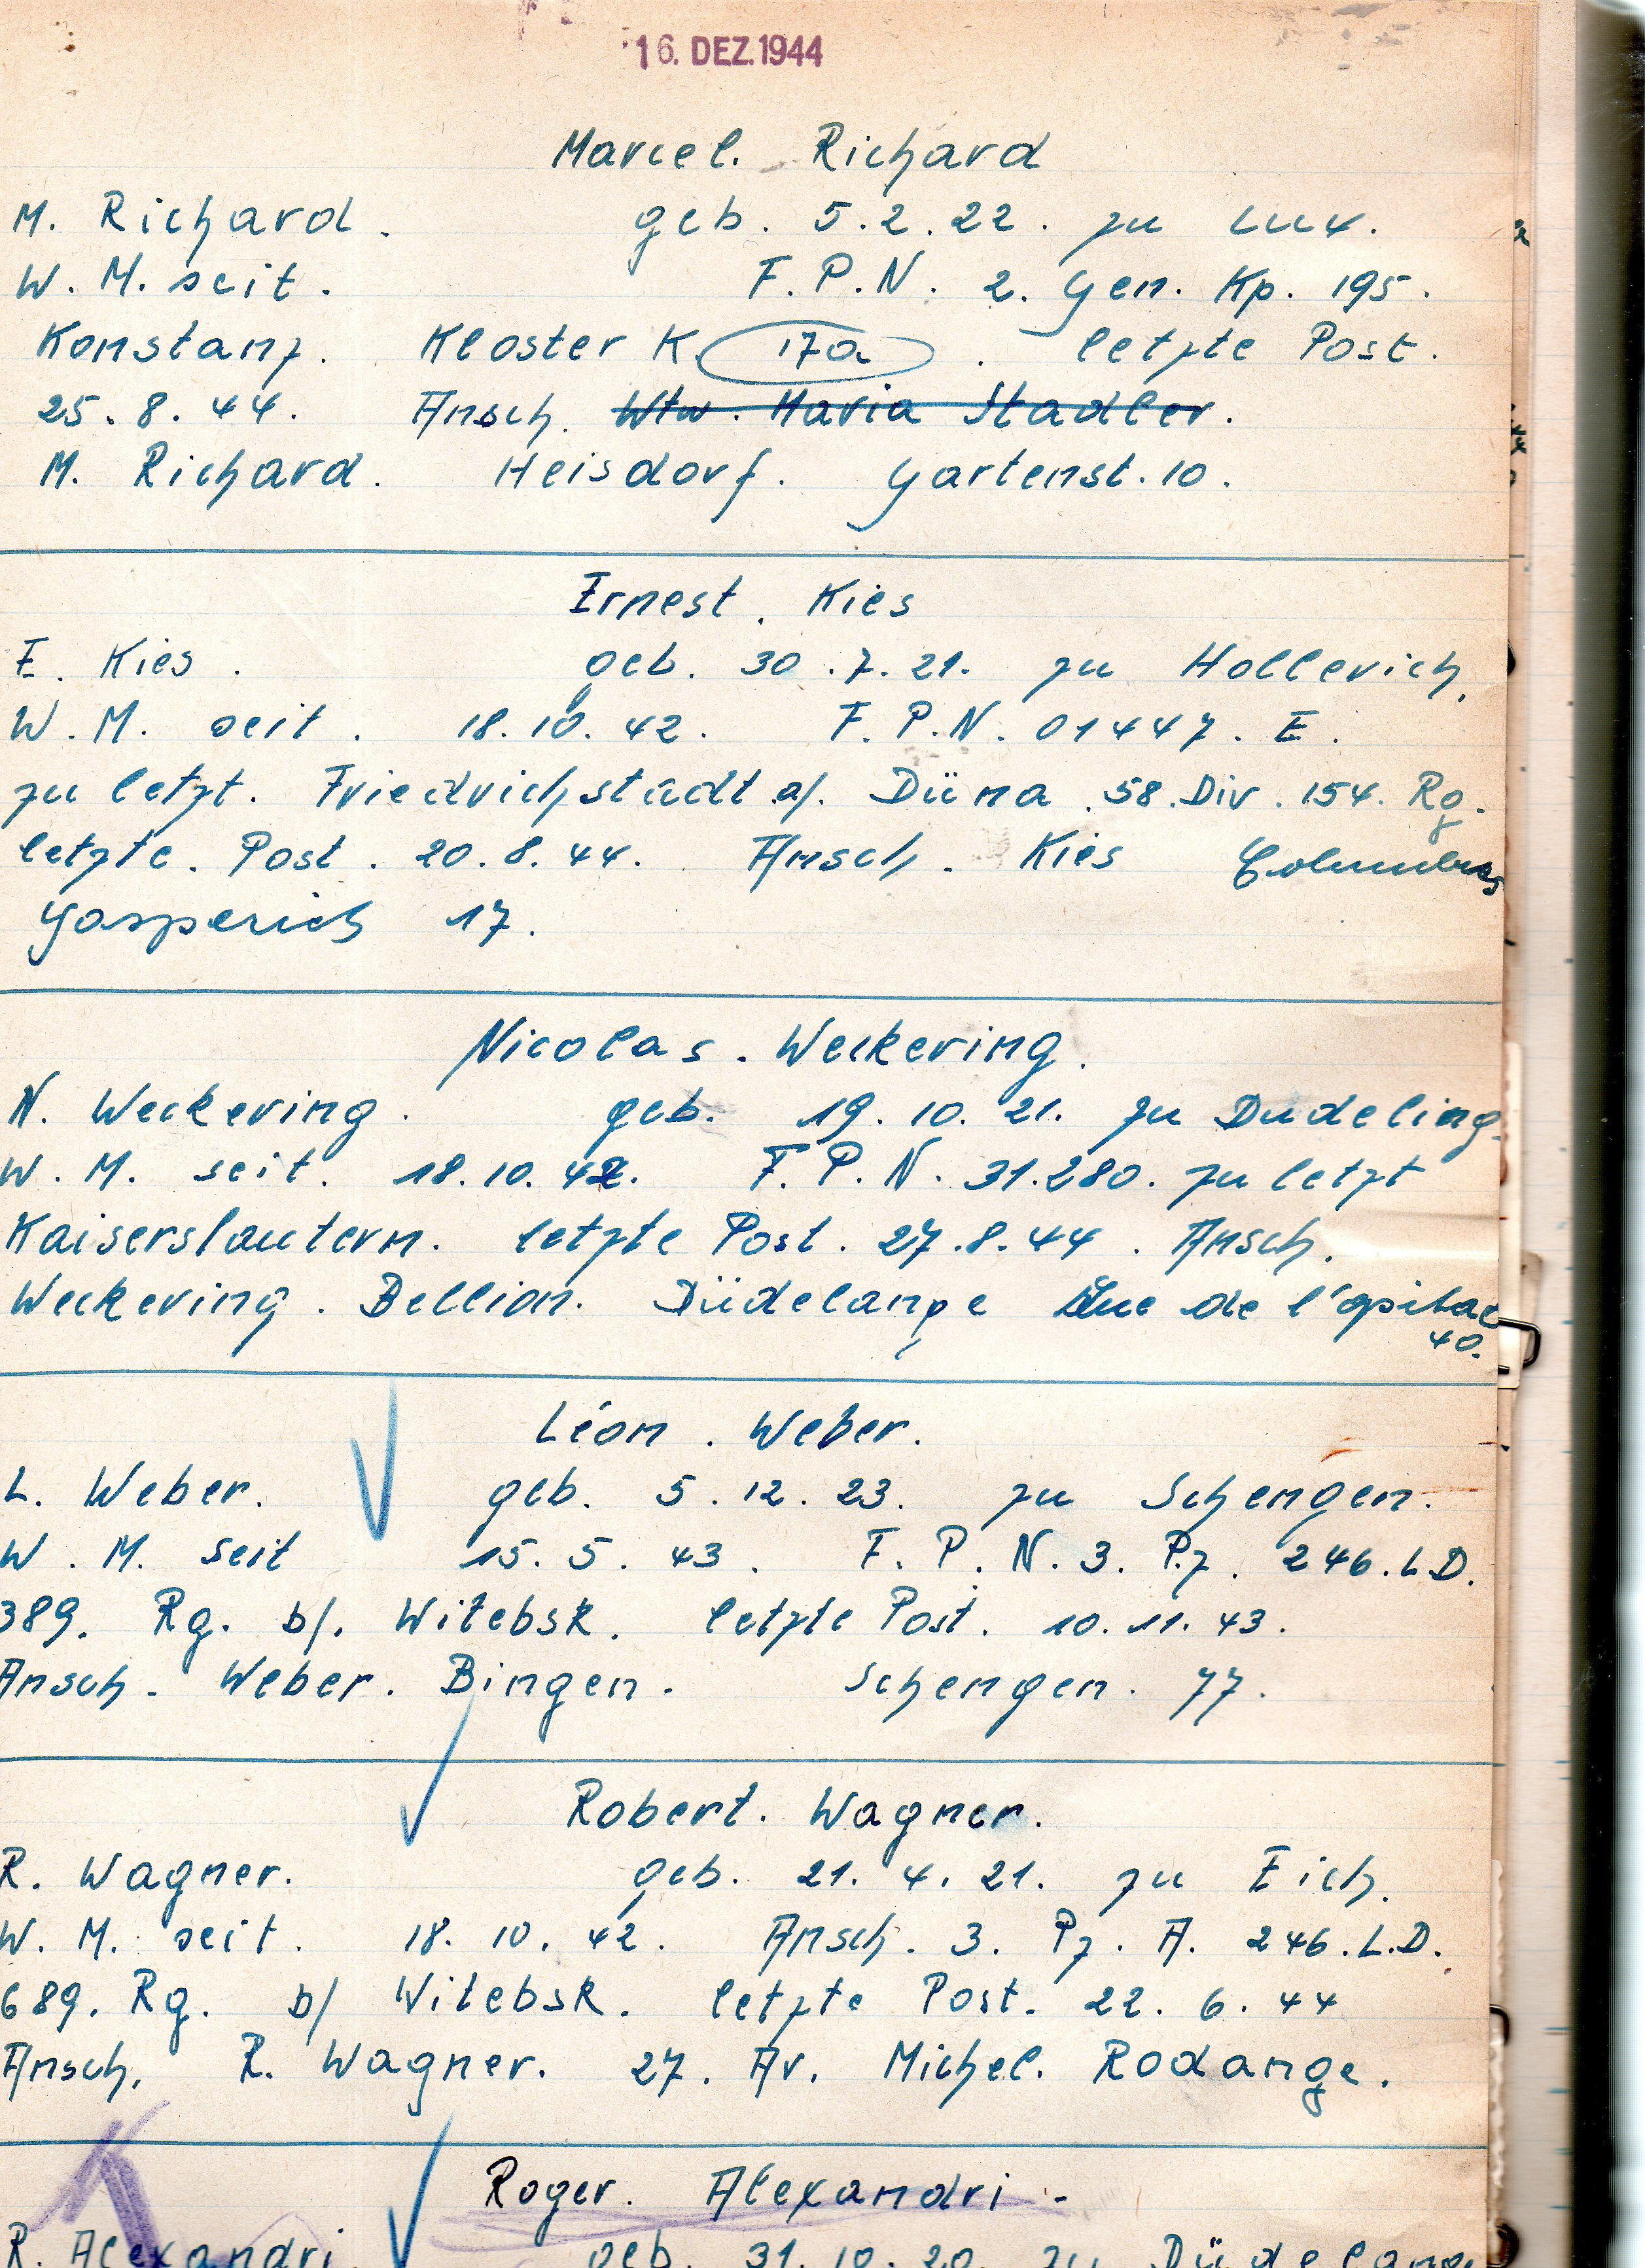 16. DEZ. 1944
Marcel. Richard
M. Richard. geb. 5.2.22. zu Lux.
W. M. seit. F.P.N. 2. Gen. Kp. 195.
Konstanz. Kloster K 17a. letzte Post.
25.8.44. Ansch. Wtw. Maria Stadler.
M. Richard. Heisdorf. Gartenst. 10.
Ernest. Kies
E. Kies. geb. 30.7.21. zu Hollerich.
W. M. seit. 18.10.42. F.P.N. 01447. E.
zu letzt. Friedrichstadt a/. Düna. 58. Div. 154. Rg.
letzte. Post. 20.8.44. Ansch. Kies Columbus
Gasperich 17.
Nicolas. Weckering.
N. Weckering. geb. 19.10.21. zu Dudeling.
W. M. seit. 18.10.42. F.P.N. 31.280. zu letzt
Kaiserslautern. letzte Post. 27.8.44. Ansch.
Weckering. Bellion. Düdelange Rue de l'opital
40.
Léon. Weber.
L. Weber. geb. 5.12.23. zu Schengen.
W. M. seit 15.5.43. F.P.N. 3. Pz. 246. L.D.
389. Rg. b/. Witebsk. letzte Post. 10.11.43.
Ansch. Weber. Bingen. Schengen. 77.
Robert. Wagner.
R. Wagner. geb. 21.4.21. zu Eich.
W. M. seit. 18.10.42. Ansch. 3. Pz. A. 246. L.D.
689. Rg. b/ Witebsk. letzte Post. 22.6.44
Ansch. R. Wagner. 27. Av. Michel. Rodange.
Roger. Alexandri -
R. Alexandri. geb. 31.10.20. zu Düdelang